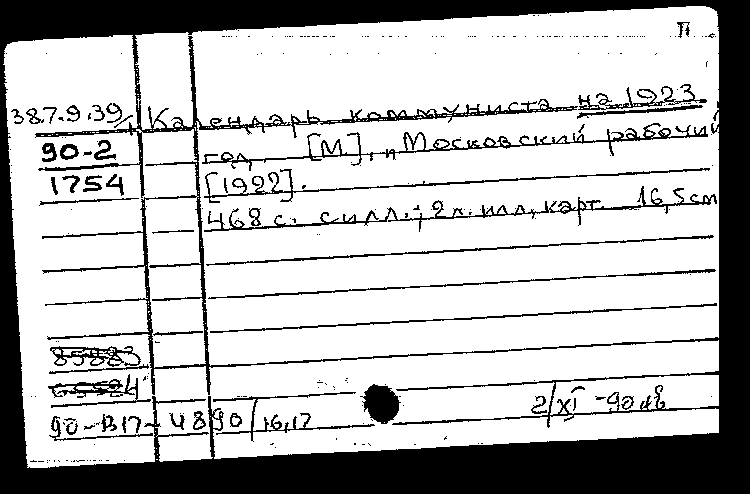 П
387.9.39/1 Календарь коммуниста на 1923
90-2 год. [М], "Московский рабочий
1754 [1922].
468 с. с илл.; 2 л. илл, карт. 16,5 см
85883
90-В17-4890/16,17 2/XI-90